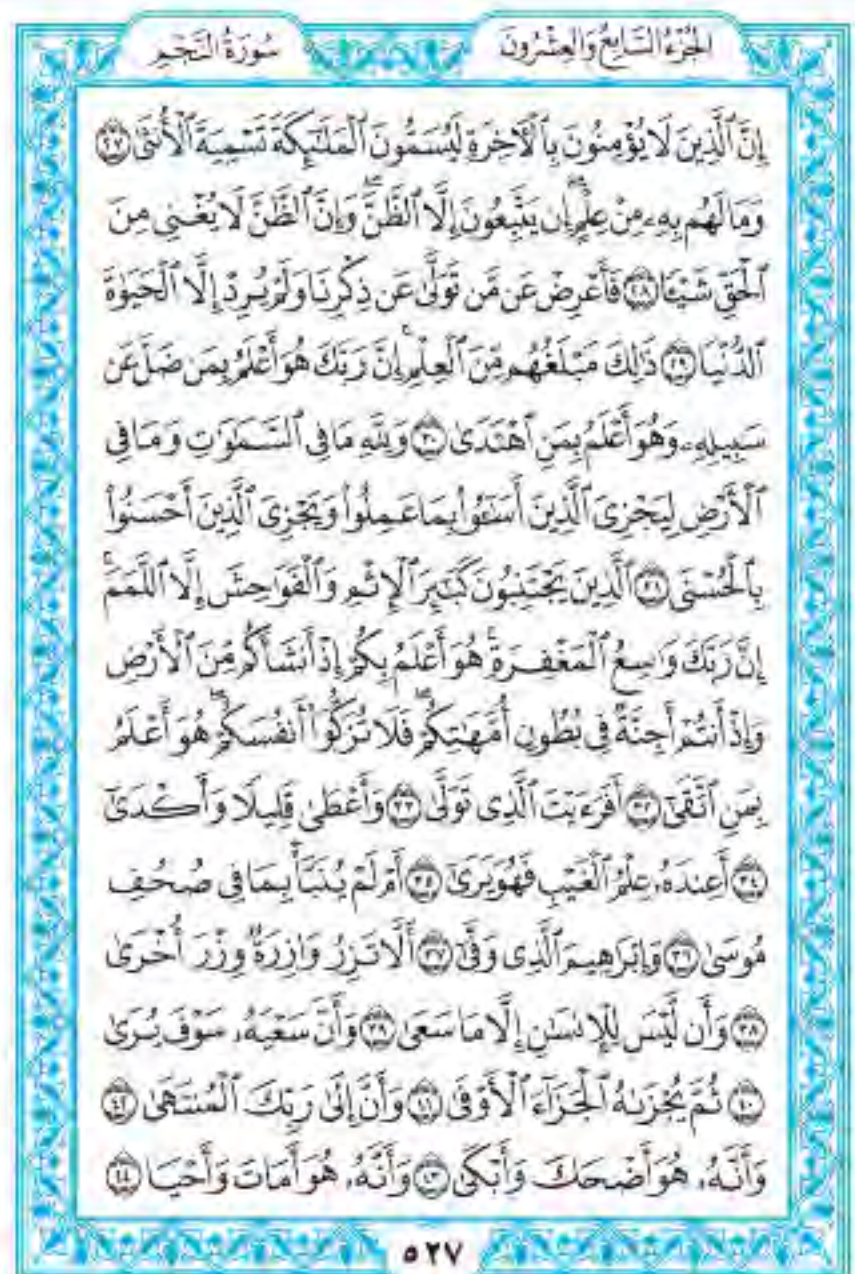 الجُزْءُ السَّابِعُ وَالعِشْرُونَ
سُورَةُ النَّجْمِ
إِنَّ ٱلَّذِينَ لَا يُؤْمِنُونَ بِٱلْأَخِرَةِ لَيُسَمُّونَ ٱلْمَلَٰٓئِكَةَ تَسْمِيَةَ ٱلْأُنثَىٰ ٢٧
وَمَا لَهُم بِهِۦ مِنْ عِلْمٍۖ إِن يَتَّبِعُونَ إِلَّا ٱلظَّنَّۖ وَإِنَّ ٱلظَّنَّ لَا يُغْنِى مِنَ
ٱلْحَقِّ شَيْـًٔا ٢٨ فَأَعْرِضْ عَن مَّن تَوَلَّىٰ عَن ذِكْرِنَا وَلَمْ يُرِدْ إِلَّا ٱلْحَيَوٰةَ
ٱلدُّنْيَا ٢٩ ذَٰلِكَ مَبْلَغُهُم مِّنَ ٱلْعِلْمِۚ إِنَّ رَبَّكَ هُوَ أَعْلَمُ بِمَن ضَلَّ عَن
سَبِيلِهِۦ وَهُوَ أَعْلَمُ بِمَنِ ٱهْتَدَىٰ ٣٠ وَلِلَّهِ مَا فِى ٱلسَّمَٰوَٰتِ وَمَا فِى
ٱلْأَرْضِ لِيَجْزِىَ ٱلَّذِينَ أَسَٰٓـُٔوا۟ بِمَا عَمِلُوا۟ وَيَجْزِىَ ٱلَّذِينَ أَحْسَنُوا۟
بِٱلْحُسْنَى ٣١ ٱلَّذِينَ يَجْتَنِبُونَ كَبَٰٓئِرَ ٱلْإِثْمِ وَٱلْفَوَٰحِشَ إِلَّا ٱللَّمَمَۚ
إِنَّ رَبَّكَ وَٰسِعُ ٱلْمَغْفِرَةِۚ هُوَ أَعْلَمُ بِكُمْ إِذْ أَنشَأَكُم مِّنَ ٱلْأَرْضِ
وَإِذْ أَنتُمْ أَجِنَّةٌ فِى بُطُونِ أُمَّهَٰتِكُمْۖ فَلَا تُزَكُّوٓا۟ أَنفُسَكُمْۖ هُوَ أَعْلَمُ
بِمَنِ ٱتَّقَىٰٓ ٣٢ أَفَرَءَيْتَ ٱلَّذِى تَوَلَّىٰ ٣٣ وَأَعْطَىٰ قَلِيلًا وَأَكْدَىٰٓ
٣٤ أَعِندَهُۥ عِلْمُ ٱلْغَيْبِ فَهُوَ يَرَىٰٓ ٣٥ أَمْ لَمْ يُنَبَّأْ بِمَا فِى صُحُفِ
مُوسَىٰ ٣٦ وَإِبْرَٰهِيمَ ٱلَّذِى وَفَّىٰٓ ٣٧ أَلَّا تَزِرُ وَازِرَةٌ وِزْرَ أُخْرَىٰ
٣٨ وَأَن لَّيْسَ لِلْإِنسَٰنِ إِلَّا مَا سَعَىٰ ٣٩ وَأَنَّ سَعْيَهُۥ سَوْفَ يُرَىٰ
٤٠ ثُمَّ يُجْزَىٰهُ ٱلْجَزَآءَ ٱلْأَوْفَىٰ ٤١ وَأَنَّ إِلَىٰ رَبِّكَ ٱلْمُنتَهَىٰ ٤٢
وَأَنَّهُۥ هُوَ أَضْحَكَ وَأَبْكَىٰ ٤٣ وَأَنَّهُۥ هُوَ أَمَاتَ وَأَحْيَا ٤٤
٥٢٧